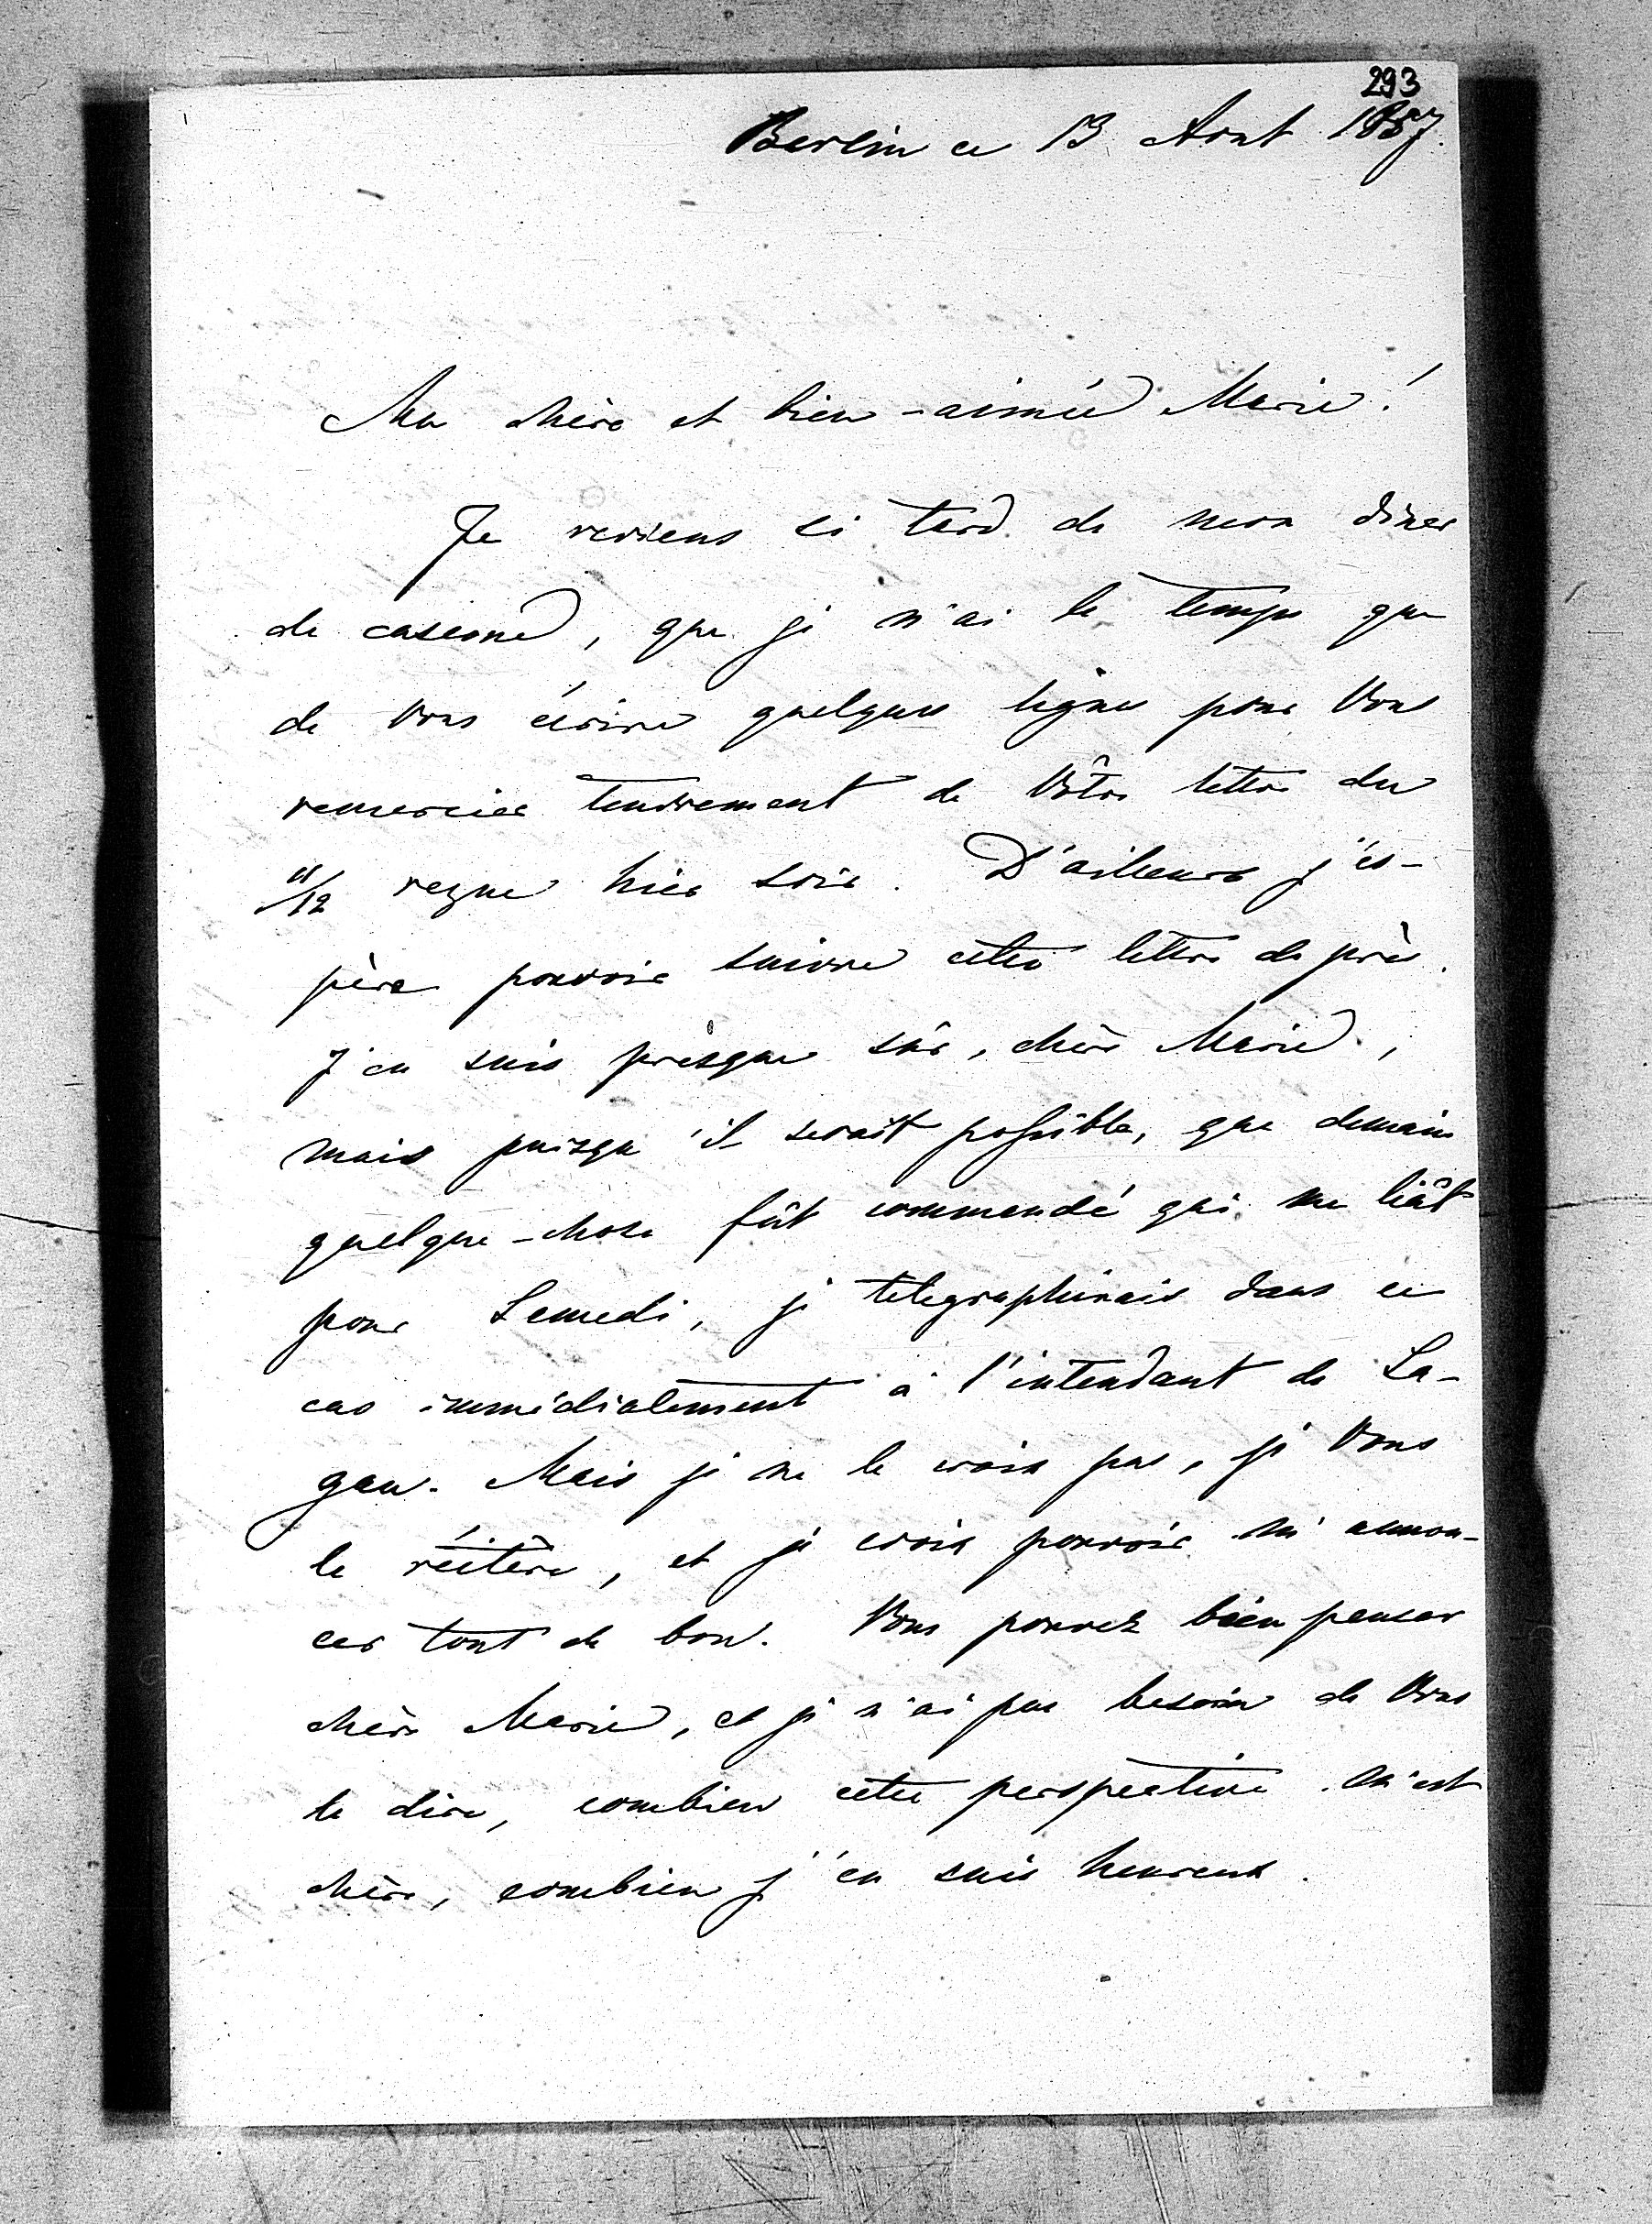 293
Berlin ce 13 Aout 1857.
Ma chère et bien-aimée Marie!
Je reviens si tard de mon diner
de caserne, que je n'ai le temps que
de Vous écrire quelques lignes pour Vous
remercier tendrement de Vôtre lettre du
11/12 reçue hier soir. D'ailleurs j'es-
père pouvoir suivre cette lettre de près.
J'en suis presque sûr, chère Marie,
mais puisqu'il serait possible, que demain
quelque-chose fût commandé qui me liât
pour Samedi, je telegraphirais dans ce
cas immédiatement à l'intendant de Sa-
gan. Mais je ne le crois pas, je Vous
le réitère, et je crois pouvoir m'annon-
cer tout de bon. Vous pouvez bien penser
chère Marie, et je n'ai pas besoin de Vous
le dire, combien cette perspective m'est
chère, combien j'en suis heureux.